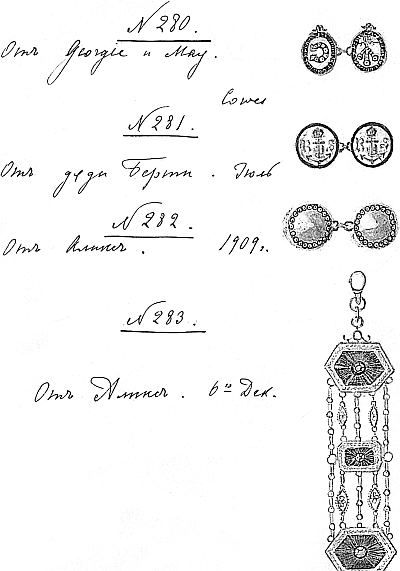 № 280.
Отъ Georgie и May.
Cowes
№ 281.
Отъ дяди Берти. Іюль
№ 282.
Отъ Аликсъ. 1909 г.
№ 283.
Отъ Аликсъ. 6го Дек.